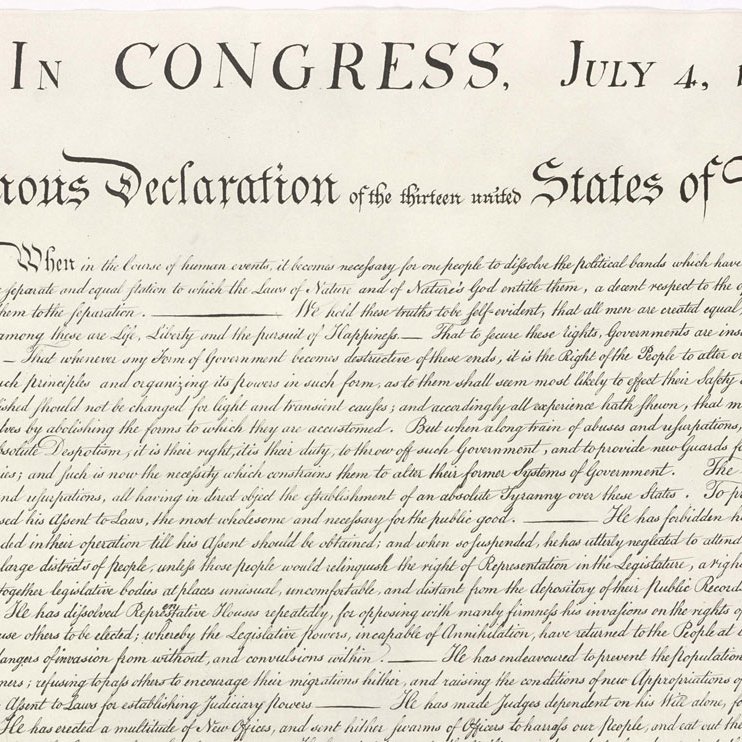 In CONGRESS, July 4, 1
mous Declaration of the thirteen united States of
When in the Course of human events, it becomes necessary for one people to dissolve the political bands which have
separate and equal station to which the Laws of Nature and of Nature's God entitle them, a decent respect to the o
hem to the separation. ——— We hold these truths to be self-evident, that all men are created equal,
among these are Life, Liberty and the pursuit of Happiness.— That to secure these rights, Governments are ins
— That whenever any Form of Government becomes destructive of these ends, it is the Right of the People to alter or
uch principles and organizing its powers in such form, as to them shall seem most likely to effect their Safety
lished should not be changed for light and transient causes; and accordingly all experience hath shewn, that m
lves by abolishing the forms to which they are accustomed. But when a long train of abuses and usurpations,
bsolute Despotism, it is their right, it is their duty, to throw off such Government, and to provide new Guards f
ies; and such is now the necessity which constrains them to alter their former Systems of Government. The
nd usurpations, all having in direct object the establishment of an absolute Tyranny over these States. To pr
sed his Assent to Laws, the most wholesome and necessary for the public good. ——— He has forbidden h
ded in their operation till his Assent should be obtained; and when so suspended, he has utterly neglected to attend
large districts of people, unless those people would relinquish the right of Representation in the Legislature, a righ
together legislative bodies at places unusual, uncomfortable, and distant from the depository of their Public Record
He has dissolved Representative Houses repeatedly, for opposing with manly firmness his invasions on the rights o
use others to be elected; whereby the Legislative Powers, incapable of Annihilation, have returned to the People at
dangers of invasion from without, and convulsions within. ——— He has endeavoured to prevent the Population
ners; refusing to pass others to encourage their migrations hither, and raising the conditions of new Appropriations o
Assent to Laws for establishing Judiciary Powers. ——— He has made Judges dependent on his Will alone, fo
He has erected a multitude of New Offices, and sent hither swarms of Officers to harrass our People, and eat out the